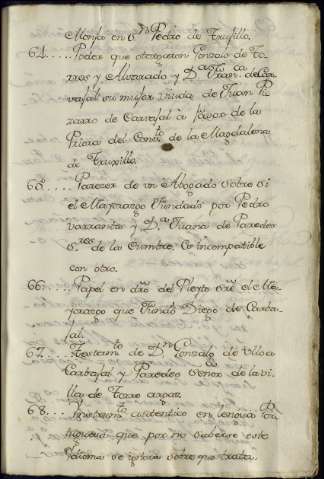 Monjas en Sn. Pedro de Truxillo.
64.....Poder que otorgaron Gonzalo de To-
rres y Alvarado y Da. Franca. de Car-
vajal su mujer viuda de Juan Pi-
zarro de Carvajal a favor de la
Priora del Conto. de la Magdalena
de Truxillo.
65.....Parecer de un Abogado sobre si
el Mayorazgo fundado por Pedro
Barrantes y Da. Juana de Paredes
Sres. de la Cumbre, es incompatible
con otro.
66.....Papel en dro. del Pleyto sre. el Ma-
yorazgo que fundó Diego de Carba-
jal.
67.....Testamto. de Dn. Gonzalo de Ulloa
Carbajal y Paredes Señor de la vi-
lla de Torre
68.....Instrumto. autentico en lengua Por-
tuguesa que por no saberse este
Idioma se ignora sobre que trata.